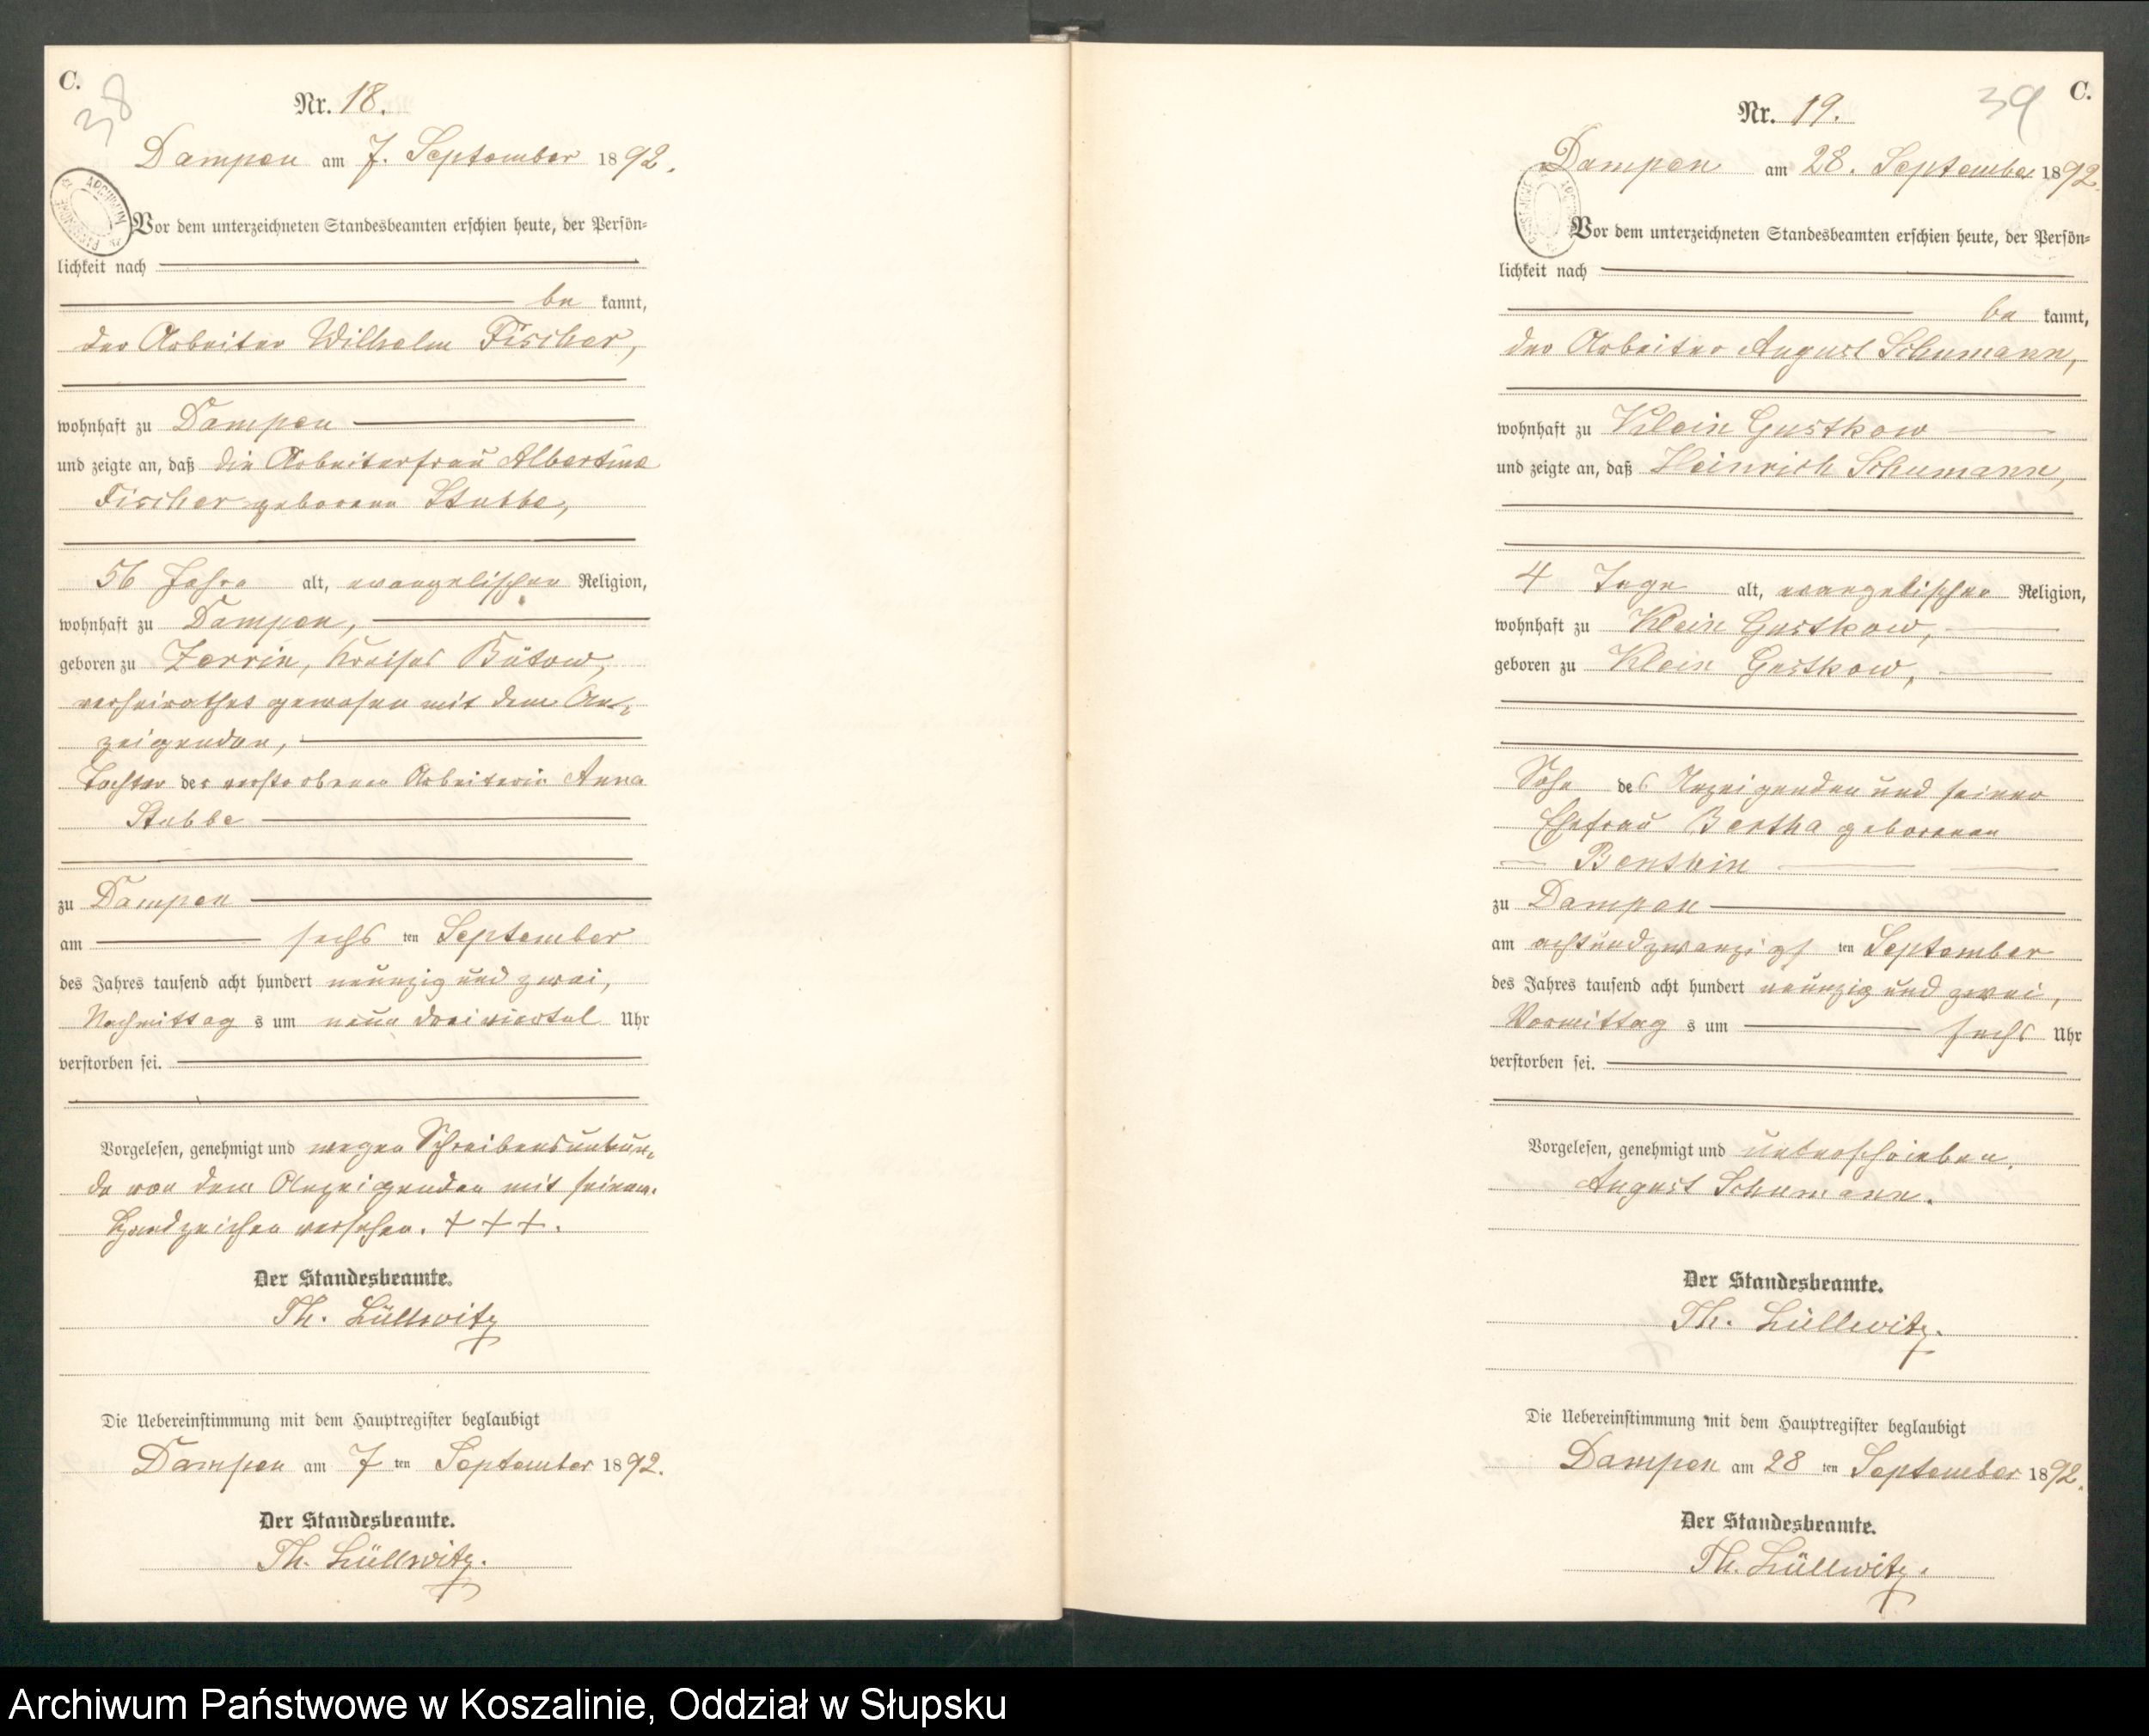 C.
38
Nr. 18.
Dampen am 7. September 1892.
Vor dem unterzeichneten Standesbeamten erschien heute, der Persön=
lichkeit nach
be kannt,
der Arbeiter Wilhelm Fischer,
wohnhaft zu Dampen
und zeigte an, daß die Arbeiterfrau Albertine
Fischer geborene Stubbe,
56 Jahre alt, evangelischer Religion,
wohnhaft zu Dampen,
geboren zu Zerrin, Kreises Bütow,
verheirathet gewesen mit dem An=
zeigenden,
Tochter der verstorbenen Arbeiterin Anna
Stubbe
zu Dampen
am sechs ten September
des Jahres tausend acht hundert neunzig und zwei,
Nachmittag s um neun dreiviertel Uhr
verstorben sei.
Vorgelesen, genehmigt und wegen Schreibensunkun=
de von dem Anzeigenden mit seinem
Handzeichen versehen. + + +.
Der Standesbeamte.
Th. Lüllwitz
Die Uebereinstimmung mit dem Hauptregister beglaubigt
Dampen am 7 ten September 1892.
Der Standesbeamte.
Th. Lüllwitz.
C.
39
Nr. 19.
Dampen am 28. September 1892.
Vor dem unterzeichneten Standesbeamten erschien heute, der Persön=
lichkeit nach
be kannt,
der Arbeiter August Schumann,
wohnhaft zu Klein Gustkow
und zeigte an, daß Heinrich Schumann,
4 Tage alt, evangelischer Religion,
wohnhaft zu Klein Gustkow,
geboren zu Klein Gustkow,
Sohn des Anzeigenden und seiner
Ehefrau Bertha geborenen
Benshin
zu Dampen
am achtundzwanzigs ten September
des Jahres tausend acht hundert neunzig und zwei,
Vormittag s um sechs Uhr
verstorben sei.
Vorgelesen, genehmigt und unterschrieben.
August Schumann.
Der Standesbeamte.
Th. Lüllwitz.
Die Uebereinstimmung mit dem Hauptregister beglaubigt
Dampen am 28 ten September 1892.
Der Standesbeamte.
Th. Lüllwitz.
Archiwum Państwowe w Koszalinie, Oddział w Słupsku